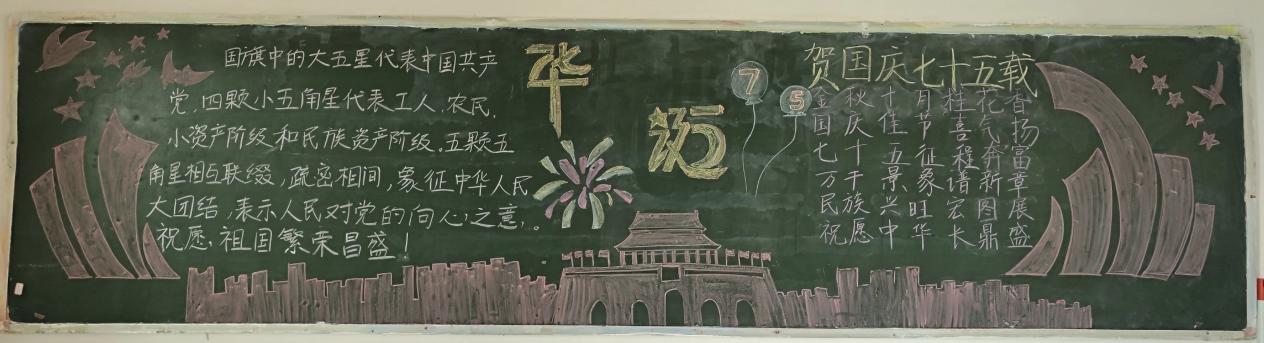 国旗中的大五星代表中国共产
党,四颗小五角星代表工人,农民,
小资产阶级和民族资产阶级,五颗五
角星相互联缀,疏密相间,象征中华人民
大团结,表示人民对党的向心之意,。
祝愿,祖国繁荣昌盛!
华
诞
7
5
贺国庆七十五载
金秋十月桂花香
国庆佳节喜气扬
七十五征程奔富
万千景象谱新章
民族兴旺宏图展
祝愿中华长鼎盛